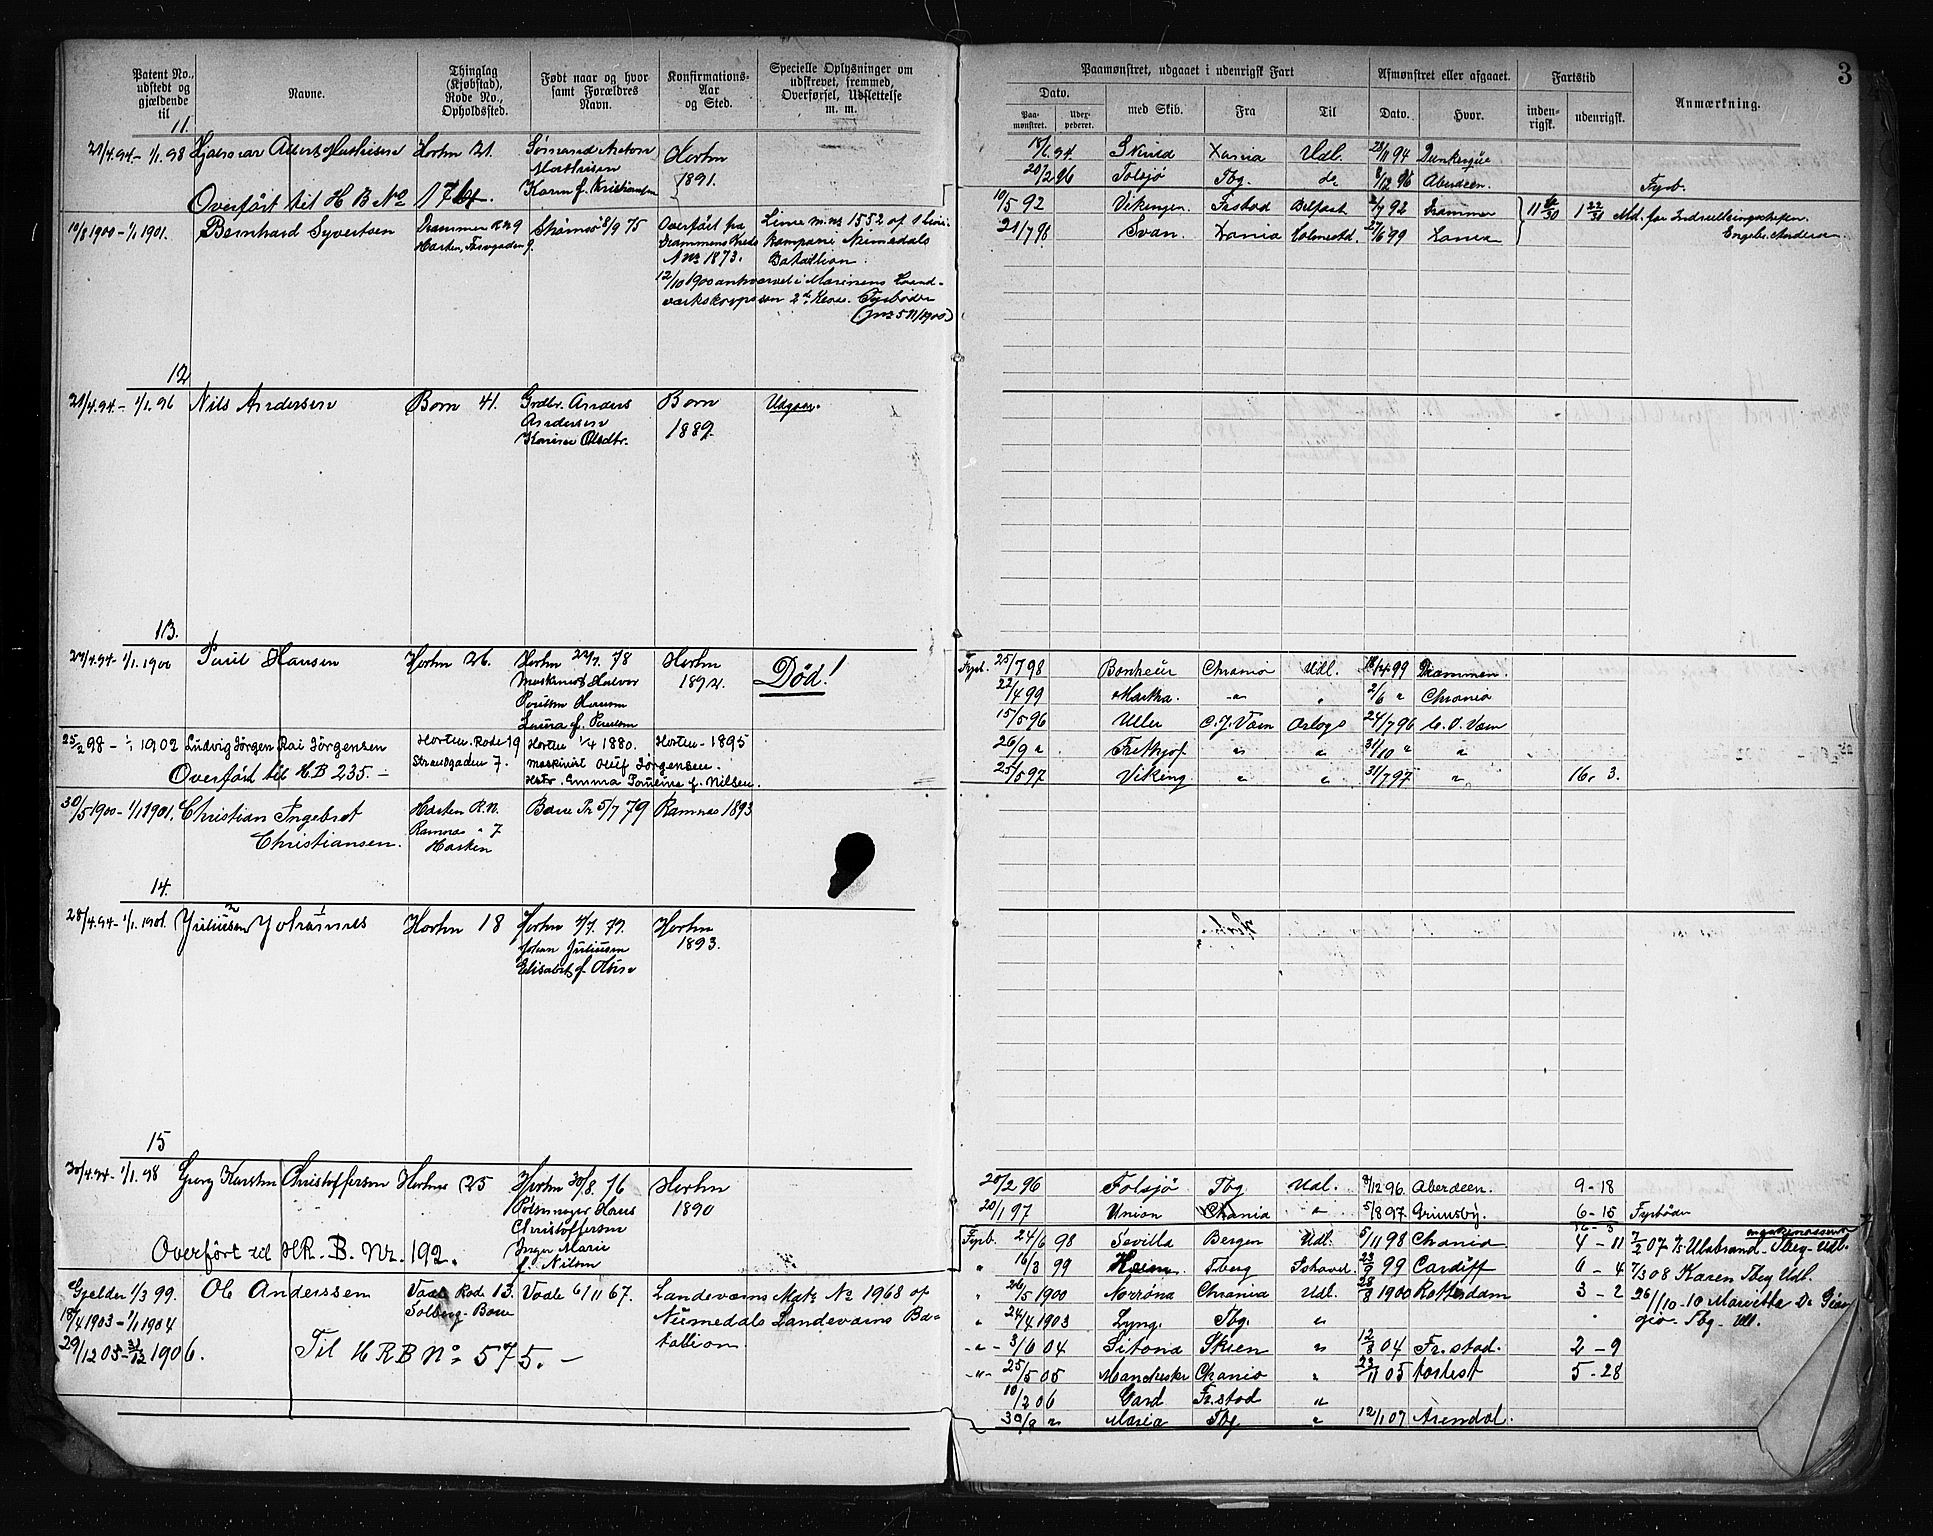 Patent No., udstedt og gjældende til
Navne.
Thinglag (Kjøbstad), Rode No., Opholdssted.
Født naar og hvor samt Forældres Navn.
Konfirmations- Aar og Sted.
Specielle Oplysninger om udskrevet, fremmed, Overførsel, Udslettelse m. m.
11.
21/4.94 - 1/1.98 Hjalmar Albert Mathisen Horten 21. Sømand Anton
Mathisen
Karen f. Kristiansen
Horten
1891.
Overført til H B No 176.
10/8 1900 - 1/1 1901. Bernhard Syvertsen
Drammen R.N.9
Horten,
8/9 75
Overført fra
Drammens Kreds
A No 1873.
Linie m.nr 1552 af 1 Linie
Kompani Numedals
Bataillion.
12/10 1900 i Marinens Haand-
værkskorps som 2den Kl. Fyrbøder
12
21/4.94 - 1/1.96 Nils Andersen Borre 41. Grdbr. Anders
Andersen
Karine Olsdtr.
Borre
1889.
Udgaar.
13.
27/4.94 - 1/1.1900 Paul Hansen Horten 26. Horten 22/7. 78
Maskinist Halvor
Poulsen Hansen
Laura f. Paulsen
Horten
1892.
Død!
25/2 98 - 1/1 1902 Ludvig Jörgen Rai Jörgensen Horten. Rode 19
Strandgaden 7.
Horten 1/4 1880.
Maskinist Oluf Jörgensen.
Hstr. Emma Pauline f. Nilsen.
Horten - 1895
Overført til H.B 235. -
30/5 1900 - 1/1 1901. Christian Ingebret
Christiansen.
Horten R.N.
Ramnæs " 7
Horten
Borre Pr 5/7 79 Ramnæs 1893
14.
28/4.94 - 1/1.1901. Juliussen Johannes Horten 18 Horten 4/7. 79.
Johan Juliussen
Elisabeth f. Olsen
Horten
1893.
15
30/4.94 - 1/1.98 Georg Karsten Christoffersen Horten 25 Horten 30/8. 76
Pölsemager Hans
Christoffersen
Inger Marie
f. Nilsen
Horten
1890
Overført til HR. B. Nr. 192.
Gjelder 1/3 99.
18/4 1903 - 1/1 1904
29/12 05 - 31/12 1906.
Ole Anderssen Vaale Rode 13.
Solberg - Borre
Vaale 6/11 67. Landeværns Mgtr No 1968 af
Numedals Landeværns Ba-
tallion.
Til H R B No 575. -
3
Paamønstret, udgaaet i udenrigsk Fart
Dato.
Paa-mønstret.
Uder-pederet.
med Skib.
Fra
Til
Afmønstret eller afgaaet.
Dato.
Hvor.
Fartstid
inden-rigsk.
udenrigsk.
Anmærkning.
18/6.94 Xania Udl. 28/11 94 Dunkerque
20/2 96 Folsjø Tbg. do 8/12 96 Aberdeen. Fyrb.
10/5 92 Vikingen. Frstad Belfast 2/7 92 Drammen
21/7 98 Svan. Xania Holmestd. 27/6 99 Xania
11 1 22/31 Md. for Indrulleringschefen.
Fyrb. 25/7 98 Bonheur Chrania Udl. 18/12 99 Drammen.
22/4 99 Martha. -"- " 2/6 " Chrania
15/5 96 Uller C. J. Værn Orlogs 24/7 96 C. J. Værn
26/9 " Frithjof " " 31/10 " "
25/5 97 Viking " " 31/7 97 " 16. 3.
20/2 96 Folsjö Tbg Udl. 8/12 96. Aberdeen. 9-18
20/1 97 Union Chrania " 5/8 97 Grimsby. 6-15 Fyrböder
Fyrb. 24/6 98 Sevilla Bergen Udl. 5/11 98 Chrania. 4-11 7/2 07 Ulabrand - Tbg - Udl.
" 16/3 99 Tberg 23/9 99 Cardiff 6-4 7/3 08 Karen Tbg Udl.
" 26/5 1900 Norröna Chrania Udl. 28/8 1900 Rotterdam 3-2 26/11 10 Marietta Di Gior
gio - Tbg - Udl.
" 24/4 1903 Lyng. Tbg. "
-"- 3/6 04 Sitona Skien " 12/8 04 Fr.stad. 2-9
-"- 25/5 05 Manchester Chrania " 23/11 05 5-28
10/2 06 Gard Fr.stad "
30/9 " Maria Tbg. " 12/1 07 Arendal.